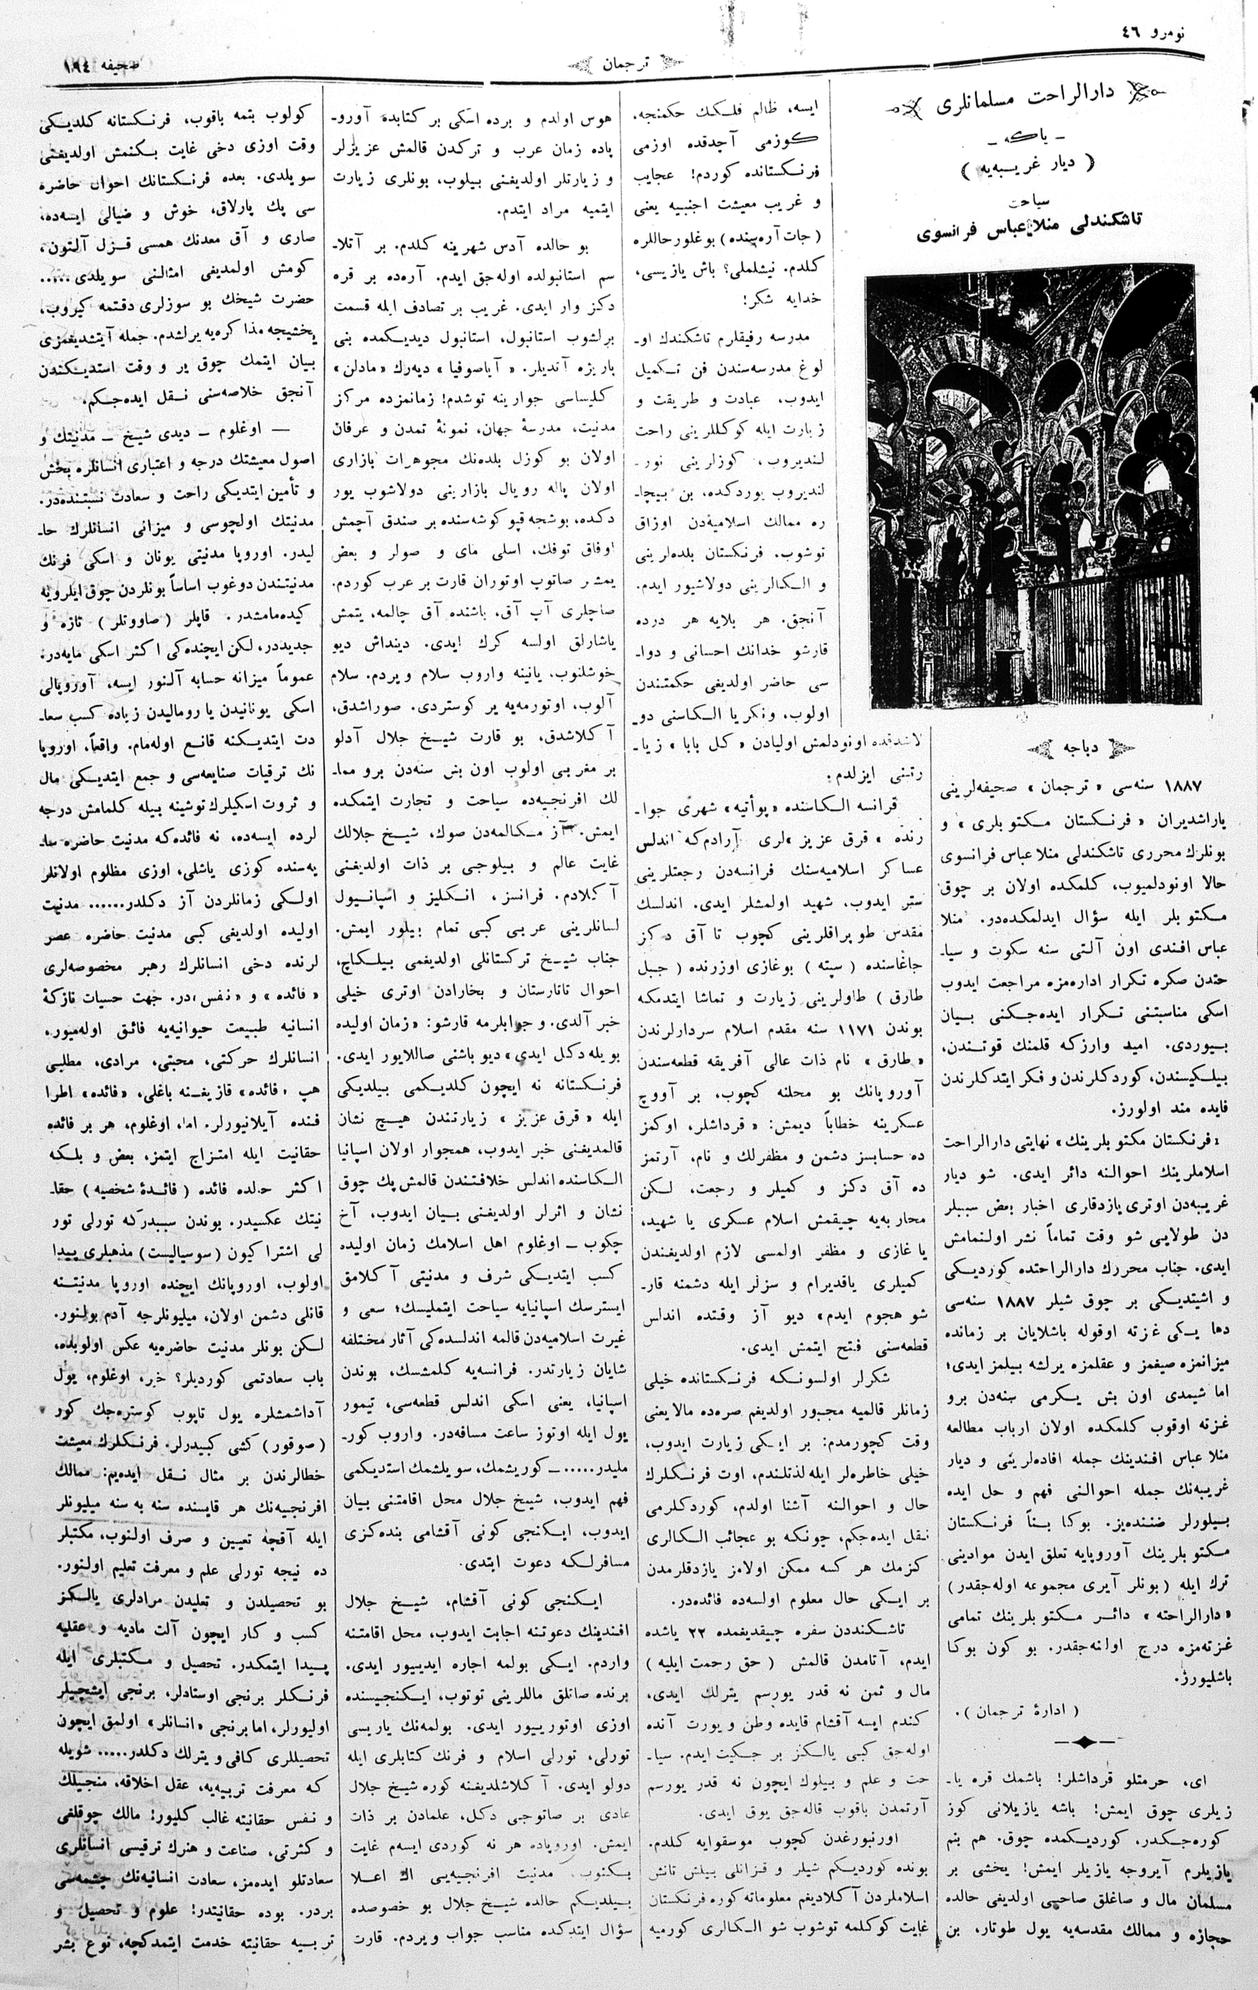 نومرو ٤٦
ترجمان
صحیفه ١٨٤
دارالراحت مسلمانلری
ـ یاکه ـ
( دیار غریبه‌یه )
سیاحت
تاشکندلی منلا عباس فرانسوی
دباجه
١٨٨٧ سنه‌سی «ترجمان» صحیفه‌لرینی
یاراشدیران «فرنکستان مکتوبلری» و
بونلرك محرری تاشکندلی منلا عباس فرانسوی
حالا اونودلمیوب، کلمکده اولان بر چوق
مکتوبلر ایله سؤال ایدلمکده‌در. منلا
عباس افندی اون آلتی سنه سکوت و سیا-
حتدن صکره تکرار اداره‌مزه مراجعت ایدوب
اسکی مناسبتنی تکرار ایده‌جکنی بیان
بیوردی. امید وارزکه قلمنك قوتندن،
بیلکیسندن، کوردکلرندن و فکر ایتدکلرندن
فایده مند اولورز.
«فرنکستان مکتوبلرینك» نهایتی دارالراحت
اسلاملرینك احوالنه دائر ایدی. شو دیار
غریبه‌دن اوتری یازدقاری اخبار بعض سببلر
دن طولایی شو وقت تماماً نشر اولنمامش
ایدی. جناب محررك دارالراحتده کوردیکی
و اشیتدیکی بر چوق شیلر ١٨٨٧ سنه‌سی
دها یکی غزته اوقوله باشلایان بر زمانده
میزانمزه صیغمز و عقلمزه یرلشه بیلمز ایدی؛
اما شیمدی اون بش یکرمی سنه‌دن برو
غزته اوقوب کلمکده اولان ارباب مطالعه
منلا عباس افندینك جمله افاده‌لرینی و دیار
غریبه‌نك جمله احوالنی فهم و حل ایده
بیلورلر ظننده‌یز. بوکا بناً فرنکستان
مکتوبلرینك آوروپایه تعلق ایدن موادینی
ترك ایله (بونلر آیری مجموعه اوله‌جقدر)
«دارالراحته» دائر مکتوبلرینك تمامی
غزته‌مزه درج اولنه‌جقدر. بو کون بوکا
باشلیورز.
( ادارهٔ ترجمان ).
ای، حرمتلو قرداشلر! باشمك قره یا-
زیلری چوق ایمش! باشه یازیلانی کوز
کوره‌جکدر، کوردیکمده چوق. هم بنم
یازیلرم آیروجه یازیلر ایمش! یخشی بر
مسلمان مال و صاغلق صاحبی اولدیغی حالده
حجازه و ممالك مقدسه‌یه یول طوتار، بن
ایسه، ظالم فلکك حکمنجه.
کوزمی آچدقده اوزمی
فرنکستانده کوردم! عجایب
و غریب معیشت اجنبیه یعنی
(جات آره‌سنده) بوغلورحاللره
کلدم. نیشلملی؟ باش یازیسی،
خدایه شکر!
مدرسه رفیقلرم تاشکندك او-
لوغ مدرسه‌سندن فن تکمیل
ایدوب، عبادت و طریقت و
زیارت ایله کوکللرینی راحت
لندیروب، کوزلرینی نور-
لندیروب یوردکده، بن بیچا-
ره ممالك اسلامیه‌دن اوزاق
توشوب. فرنکستان بلده‌لرینی
و الکالرینی دولاشیور ایدم.
آنجق. هر بلایه هر درده
قارشو خدانك احسانی و دوا-
سی حاضر اولدیغی حکمتندن
اولوب، ونکر یا الکاسنی دو-
لاشدقده اونودلمش اولیادن «کل بابا» زیا-
رتنی ایزلدم.
فرانسه الکاسنده «پوآتیه» شهری جوا-
رنده «قرق عزیز»لری آرادم که اندلس
عساکر اسلامیه‌سنك فرانسه‌دن رجعتلرینی
ستر ایدوب، شهید اولمشلر ایدی. اندلسك
مقدس طوپراقلرینی کچوب تا آق دکز
جاغاسنده (سپته) بوغازی اوزرنده (جبل
طارق) طاولرینی زیارت و تماشا ایتدمکه
بوندن ١١٧١ سنه مقدم اسلام سردارلرندن
«طارق» نام ذات عالی آفریقه قطعه‌سندن
آوروپانك بو محلنه کچوب، بر آووچ
عسکرینه خطاباً دیمش: «قرداشلر، اوکمز
ده حسابسز دشمن و مظفرلك و نام، آرتمز
ده آق دکز و کمیلر و رجعت، لکن
محاربه‌یه چیقمش اسلام عسکری یا شهید،
یا غازی و مظفر اولمسی لازم اولدیغندن
کمیلری یاقدیرام و سزلر ایله دشمنه قار-
شو هجوم ایدم» دیو آز وقتده اندلس
قطعه‌سنی فتح ایتمش ایدی.
شکرلر اولسونکه فرنکستانده خیلی
زمانلر قالمیه مجبور اولدیغم صره‌ده مالایعنی
وقت کچورمدم: بر ایکی زیارت ایدوب،
خیلی خاطره‌لر ایله لذتلندم، اوت فرنکلرك
حال و احوالنه آشنا اولدم، کوردکلرمی
نقل ایده‌جکم، چونکه بو عجائب الکالری
کزمك هر کسه ممکن اولامز یازدقلرمدن
بر ایکی حال معلوم اولسه‌ده فائده‌در.
تاشکنددن سفره چیقدیغمده ٢٢ یاشده
ایدم، آتامدن قالمش (حق رحمت ایلیه)
مال و ثمن نه قدر یورسم یترلك ایدی،
کندم ایسه آقشام قایده وطن و یورت آنده
اوله‌جق کبی یالکز بر جکیت ایدم. سیا-
حت و علم و بیلوك ایچون نه قدر یورسم
آرتمدن باقوب قاله‌جق یوق ایدی.
اورنبورغدن کچوب موسقوایه کلدم.
بونده کوردیکم شیلر و قزانلی بیلش تانش
اسلاملردن آکلادیغم معلوماته کوره فرنکستان
غایت کوکلمه توشوب شو الکالری کورمیه
هوس اولدم و برده اسکی بر کتابده آورو-
پاده زمان عرب و ترکدن قالمش عزیزلر
و زیارتلر اولدیغنی بیلوب، بونلری زیارت
ایتمیه مراد ایتدم.
بو حالده آدس شهرینه کلدم. بر آتلا-
سم استانبولده اوله‌جق ایدم. آره‌ده بر قره
دکز وار ایدی. غریب بر تصادف ایله قسمت
برلشوب استانبول، استانبول دیدیکمده بنی
پاریژه آتدیلر. «آیاصوفیا» دیه‌رك «مادلن»
کلیساسی جوارینه توشدم! زمانمزده مرکز
مدنیت، مدرسهٔ جهان، نمونهٔ تمدن و عرفان
اولان بو کوزل بلده‌نك مجوهرات بازاری
اولان پاله رویال بازارینی دولاشوب یور
دکده، بوشجه قپو کوشه‌سنده بر صندق آچمش
اوفاق توفك، اسلی مای و صولر و بعض
یمشلر صاتوب اوتوران قارت بر عرب کوردم.
صاچلری آپ آق، باشنده آق چالمه، یتمش
یاشارلق اولسه کرك ایدی. دینداش دیو
خوشلنوب، یانینه واروب سلام ویردم. سلام
آلوب، اوتورمه‌یه یر کوستردی. صوراشدق،
آکلاشدق، بو قارت شیخ جلال آدلو
بر مغربی اولوب اون بش سنه‌دن برو مما-
لك افرنجیه‌ده سیاحت و تجارت ایتمکده
ایمش. آز مکالمه‌دن صوك، شیخ جلالك
غایت عالم و بیلوجی بر ذات اولدیغنی
آکلادم. فرانسز، انکلیز و اسپانیول
لسانلرینی عربی کبی تمام بیلور ایمش.
جناب شیخ ترکستانلی اولدیغمی بیلکاچ،
احوال تاتارستان و بخارادن اوتری خیلی
خبر آلدی. و جوابلرمه قارشو: «زمان اولیده
بویله دکل ایدی» دیو باشنی صاللایور ایدی.
فرنکستانه نه ایچون کلدیکمی بیلدیکی
ایله «قرق عزیز» زیارتندن هیچ نشان
قالمدیغنی خبر ایدوب، همجوار اولان اسپانیا
الکاسنده اندلس خلافتندن قالمش پك چوق
نشان و اثرلر اولدیغنی بیان ایدوب، آخ
چکوب ـ اوغلوم اهل اسلامك زمان اولیده
کسب ایتدیکی شرف و مدنیتی آکلامق
ایسترسك اسپانیایه سیاحت ایتملیسك؛ سعی و
غیرت اسلامیه‌دن قالمه اندلسده‌کی آثار مختلفه
شایان زیارتدر. فرانسه‌یه کلمشسك، بوندن
اسپانیا، یعنی اسکی اندلس قطعه‌سی، تیمور
یول ایله اوتوز ساعت مسافه‌در. واروب کور-
ملیدر..... ـ کوریشمك، سویلشمك استدیکمی
فهم ایدوب، شیخ جلال محل اقامتنی بیان
ایدوب، ایکنجی کونی آقشامی بنده‌کزی
مسافرلکه دعوت ایتدی.
ایکنجی کونی آقشام، شیخ جلال
افندینك دعوتنه اجابت ایدوب، محل اقامتنه
واردم. ایکی بولمه اجاره ایدییور ایدی.
برنده صاتلق ماللرینی توتوب، ایکنجیسنده
اوزی اوتوریپور ایدی. بولمه‌نك یاریسی
تورلی، تورلی اسلام و فرنك کتابلری ایله
دولو ایدی. آکلاشلدیغنه کوره شیخ جلال
عادی بر صاتوجی دکل، علمادن بر ذات
ایمش. اوروپاده هر نه کوردی ایسه‌م غایت
بکنوب مدنیت افرنجیه‌یی اك اعلا
بیلدیکم حالده شیخ جلال بو خصوصده
سؤال ایتدکده مناسب جواب ویردم. قارت
کولوب یتمه باقوب، فرنکستانه کلدیکی
وقت اوزی دخی غایت بکنمش اولدیغنی
سویلدی. بعده فرنکستانك احوال حاضره
سی پك پارلاق، خوش و ضیالی ایسه‌ده،
صاری و آق معدنك همسی قزل آلتون،
کومش اولمدیغی امثالنی سویلدی.....
حضرت شیخك بو سوزلری دقتمه کیروب،
یخشیجه مذاکره‌یه یرلشدم. جمله آیتشدیغمزی
بیان ایتمك چوق یر و وقت استدیکندن
آنجق خلاصه‌سنی نقل ایده‌جکم.
— اوغلوم ـ دیدی شیخ ـ مدنیتك و
اصول معیشتك درجه و اعتباری انسانلره پخش
و تأمین ایتدیکی راحت و سعادت نسبتنده‌در.
مدنیتك اولچوسی و میزانی انسانلرك حا-
لیدر. اوروپا مدنیتی یونان و اسکی فرنك
مدنیتندن دوغوب اساساً بونلردن چوق ایلرویه
کیده‌مامشدر. قاپلر (صاووتلر) تازه و
جدیددر، لکن ایچنده‌کی اکثر اسکی مایه‌در.
عموماً میزانه حسابه آلنور ایسه، آوروپالی
اسکی یونانیدن یا رومالیدن زیاده کسب سعا-
دت ایتدیکنه قانع اوله‌مام. واقعاً، اوروپا
نك ترقیات صنایعه‌سی و جمع ایتدیکی مال
و ثروت اسکیلرك توشینه بیله کلمامش درجه
لرده ایسه‌ده، نه فائده‌که مدنیت حاضره سا-
یه‌سنده کوزی یاشلی، اوزی مظلوم اولانلر
اولکی زمانلردن آز دکلدر...... مدنیت
اولیده اولدیغی کبی مدنیت حاضره عصر
لرنده دخی انسانلرك رهبر مخصوصه‌لری
«فائده» و «نفس»در. جهت حسیات نازکهٔ
انسانیه طبیعت حیوانیه‌یه فائق اوله‌میور،
انسانلرك حرکتی، محبتی، مرادی، مطلبی
هپ «فائده» قازیغنه باغلی، «فائده» اطرا
فنده آیلانیورلر. اما، اوغلوم، هر بر فائده
حقانیت ایله امتزاج ایتمز، بعض و بلکه
اکثر حالده فائده (فائدهٔ شخصیه) حقا-
نیتك عکسیدر. بوندن سببدرکه تورلی تور
لی اشتراکیون (سوسیالیست) مذهبلری پیدا
اولوب، اوروپانك ایچنده اوروپا مدنیتنه
قانلی دشمن اولان، میلیونلرجه آدم بولنور.
لکن بونلر مدنیت حاضره‌یه عکس اولوبده،
باب سعادتمی کوردیلر؟ خیر، اوغلوم، یول
آداشمشلره یول تاپوب کوستره‌جك کور
(صوقور) کشی کبیدرلر. فرنکلرك معیشت
خطالرندن بر مثال نقل ایده‌یم: ممالك
افرنجیه‌نك هر قایسنده سنه به سنه میلیونلر
ایله آقچه تعیین و صرف اولنوب، مکتبلر
ده نیجه تورلی علم و معرفت تعلیم اولنور.
بو تحصیلدن و تعلیدن مرادلری یالکز
کسب و کار ایچون آلت مادیه و عقلیه
پیدا ایتمکدر. تحصیل و مکتبلری ایله
فرنکلر برنجی اوستادلر، برنجی ایشچیلر
اولیورلر، اما برنجی «انسانلر» اولمق ایچون
تحصیللری کافی و یترلك دکلدر..... شویله
که معرفت تربیه‌یه، عقل اخلاقه، منجیلك
و نفس حقانیته غالب کلیور! مالك چوقلغی
و کثرتی، صناعت و هنرك ترقیسی انسانلری
سعادتلو ایده‌مز، سعادت انسانیه‌نك چشمه‌سی
بردر. بوده حقانیتدر! علوم و تحصیل و
تربیه حقانیته خدمت ایتمدکچه، نوع بشر